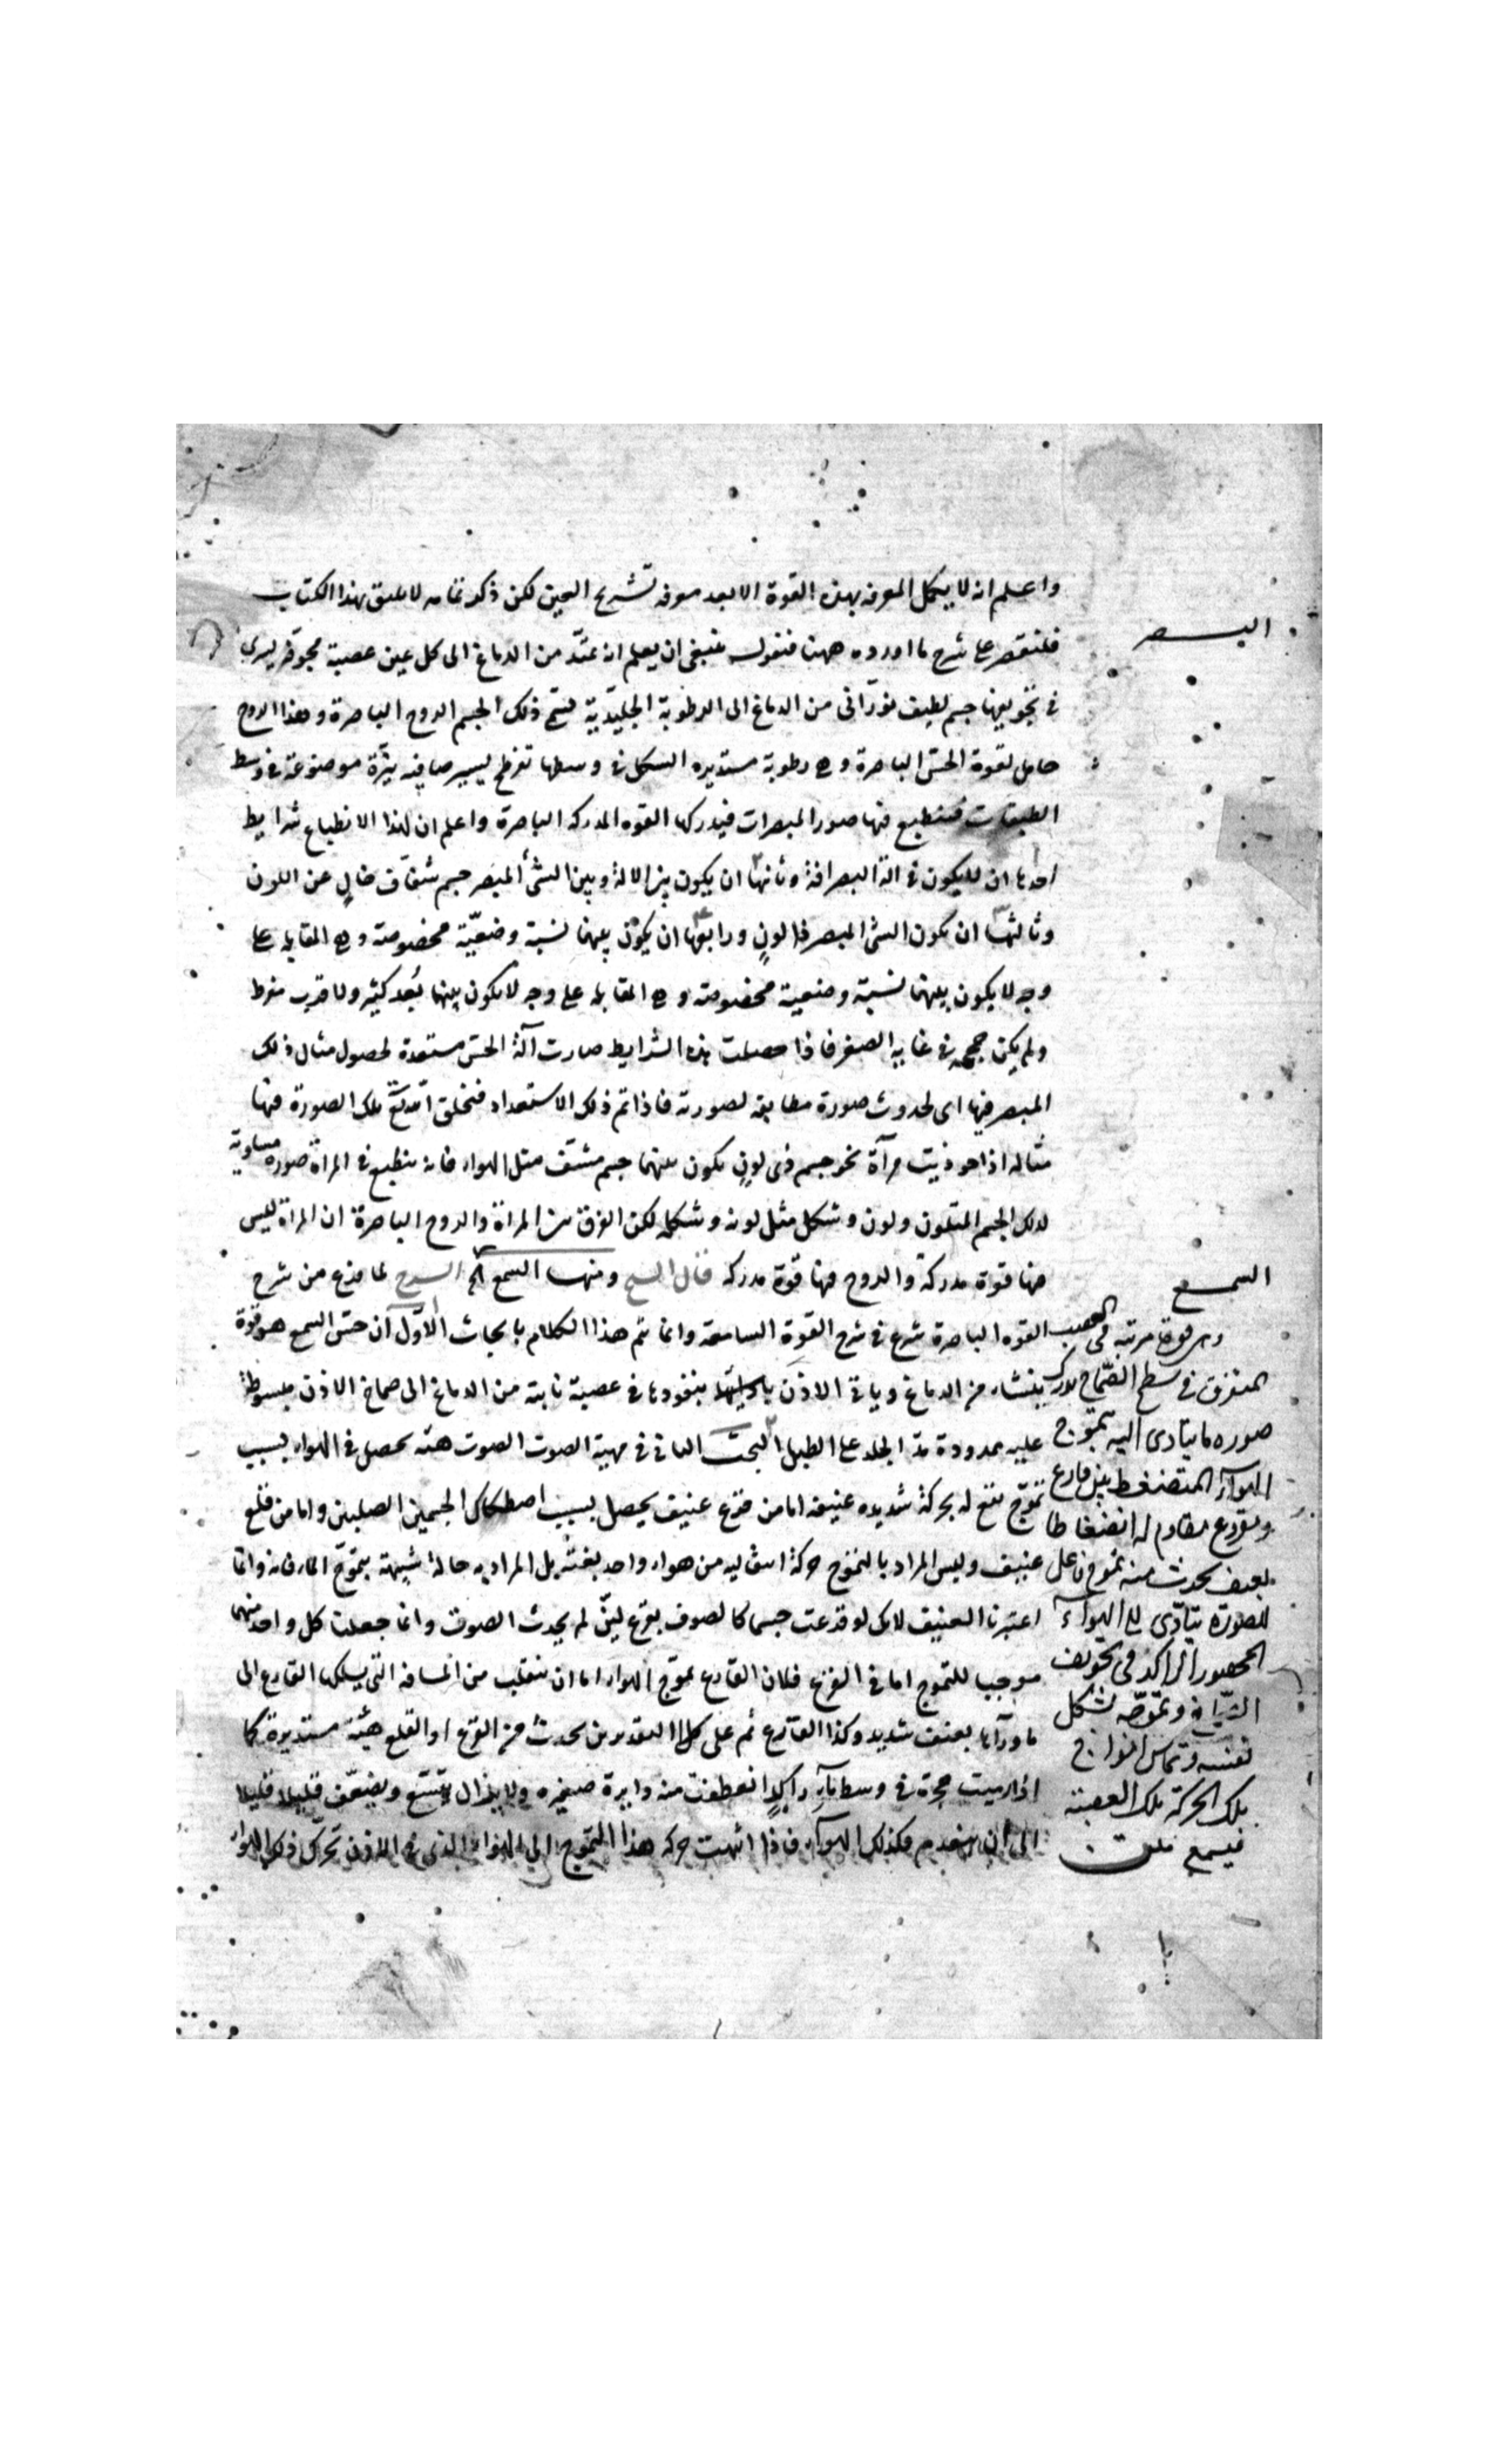 واعلم انه لا يكمل المعرفة بهذه القوة الا بعد معرفة تشريح العين لكن ذكر تمامه لا يليق بهذا الكتاب
البصر
فلنقتصر على شرح ما اورده ههنا فنقول ينبغى ان يعلم انه يمتد من الدماغ الى كل عين عصبة مجوفة يسرى
فى تجويفها جسم لطيف نورانى من الدماغ الى الرطوبة الجليدية يسمى ذلك الجسم الروح الباصرة وهذا الروح
حامل لقوة الحس الباصرة وهى رطوبة مستديره الشكل فى وسطها تفرطح يسير صافيه نيرة موضوعة فى وسط
الطبقات فتنطبع فيها صور المبصرات فيدركها القوه المدركه الباصرة واعلم ان لهذا الانطباع شرايط
احدها ان لا يكون فى الة البصر افة وثانيها ان يكون بين الالة وبين الشئ المبصر جسم شفاف خالٍ عن اللون
وثالثها ان يكون الشئ المبصر ذا لونٍ ورابعها ان يكون بينهما نسبة وضعيّة مخصوصة وهى المقابله على
وجه لا يكون بينهما نسبة وضعية مخصوصة وهى المقابله على وجه لا يكون بينهما بُعد كثير ولا قرب مفرط
ولم يكن حجمه فى غاية الصغر فاذا حصلت هذه الشرايط صارت آلة الحس مستعدة لحصول مثال ذلك
المبصر فيها اى لحدوث صورة مطابقة لصورته فاذا تم ذلك الاستعداد فتخلق الله تع تلك الصورة فيها
مثاله اذا حوذيت مرآة نحو جسم ذى لونٍ يكون بينهما جسم مشف مثل الهواء فانه ينطبع فى المراة صورة مساوية
لذلك الجسم المتلون ولون وشكل مثل لونه وشكله لكن الفرق بين المراة والروح الباصرة ان المراة ليس
فيها قوة مدركة والروح فيها قوة مدركه قال الشيخ ومنها السمع الخ الشرح لما فرغ من شرح
القوه الباصرة شرع فى شرح القوة السامعة وانما يتم هذا الكلام بابحاث الاول ان حسّ السمع هو قوة
ينشاء من الدماغ وياتى الاذن بنفوذها فى عصبة نابتة من الدماغ الى صماخ الاذن مبسوطة
عليه ممدودة مد الجلد على الطبل البحث الثانى فى مهية الصوت الصوت هيئة يحصل فى الهواء بسبب
تموّج يقع له بحركة شديده عنيفة اما من قرع عنيف يحصل بسبب اصطكاك الجسمين الصلبين واما من قلع
عنيف وليس المراد بالتموج حركة انتقاليه من هواء واحد بعينه بل المراد به حالة شبيهة بتموّج الماء فانه وانما
اعتبرنا العنيف لانك لو قرعت جسما كالصوف بقرع لينّ لم يحدث الصوت وانما جعلت كل واحد منهما
موجب للتموج اما فى القرع فلان القارع يموّج الهواء اما ان ينقلب من المسافة التى يسلكها القارع الى
ما ورآها بعنف شديد وكذا القارع ثم على كل التقديرين يحدث من القرع او القلع هيئة مستديرة كما
اذا رميت حجرة فى وسط ماءٍ راكدٍ انعطفت منه دايرة صغيره ولا يزال يتسع ويضعف قليلا قليلا
الى ان ينعدم فكذلك الهوآء فاذا انتهت حركه هذا التموج الى الهواء الذى فى الاذن تحرك ذلك الهواء
السمع
وهى قوة مرتبه فى العصب
المتفرق فى سطح الصّماخ يدرك
صوره ما يتادى اليه بتموج
الهوآء المتضغط بين قارع
ومقروع مقاوم له انضغاطا
بعنف يحدث منه تموج فاعل
للصوت يتادّى الى الهوآء
المحصور الراكد فى تجويف
الصماخ وتموجه بشكل
نفسه وتماس امواج
تلك الحركة تلك العصبة
فيسمع